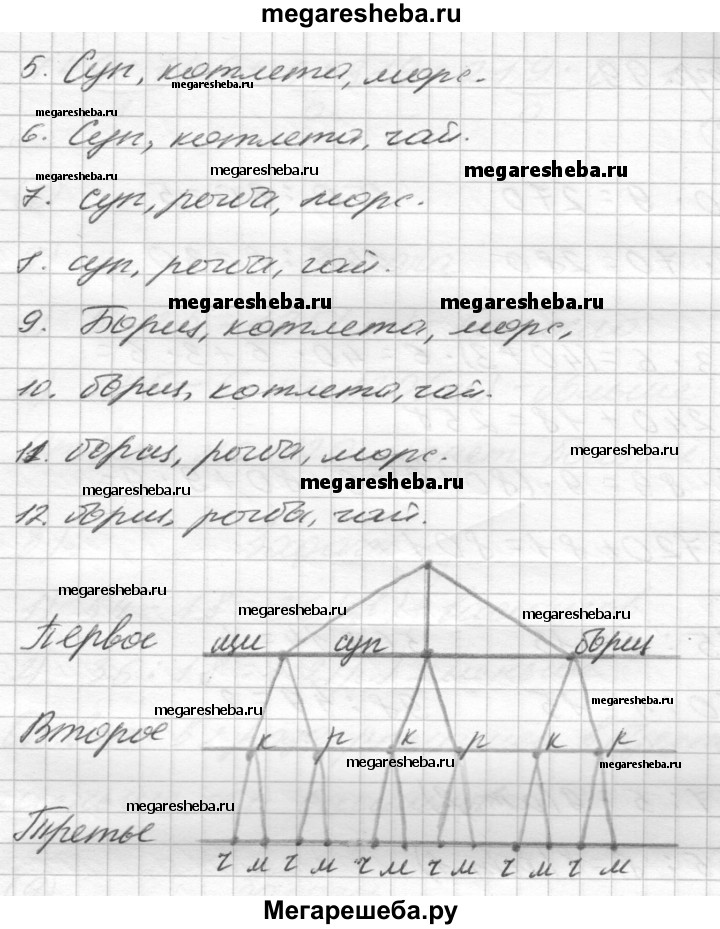 megaresheba.ru
5. Суп, котлета, морс.
megaresheba.ru
megaresheba.ru
6. Суп, котлета, чай.
megaresheba.ru
megaresheba.ru
megaresheba.ru
7. суп, рыба, морс.
8. суп, рыба, чай.
megaresheba.ru
megaresheba.ru
9. Борщ, котлета, морс,
10. борщ, котлета, чай.
11. борщ, рыба, морс.
megaresheba.ru
megaresheba.ru
megaresheba.ru
12. борщ, рыба, чай.
megaresheba.ru
megaresheba.ru
megaresheba.ru
Первое щи суп борщ
megaresheba.ru
megaresheba.ru
Второе к р к р к р
megaresheba.ru
megaresheba.ru
megaresheba.ru
Третье
ч м ч м ч м ч м ч м ч м
Мегарешеба.ру